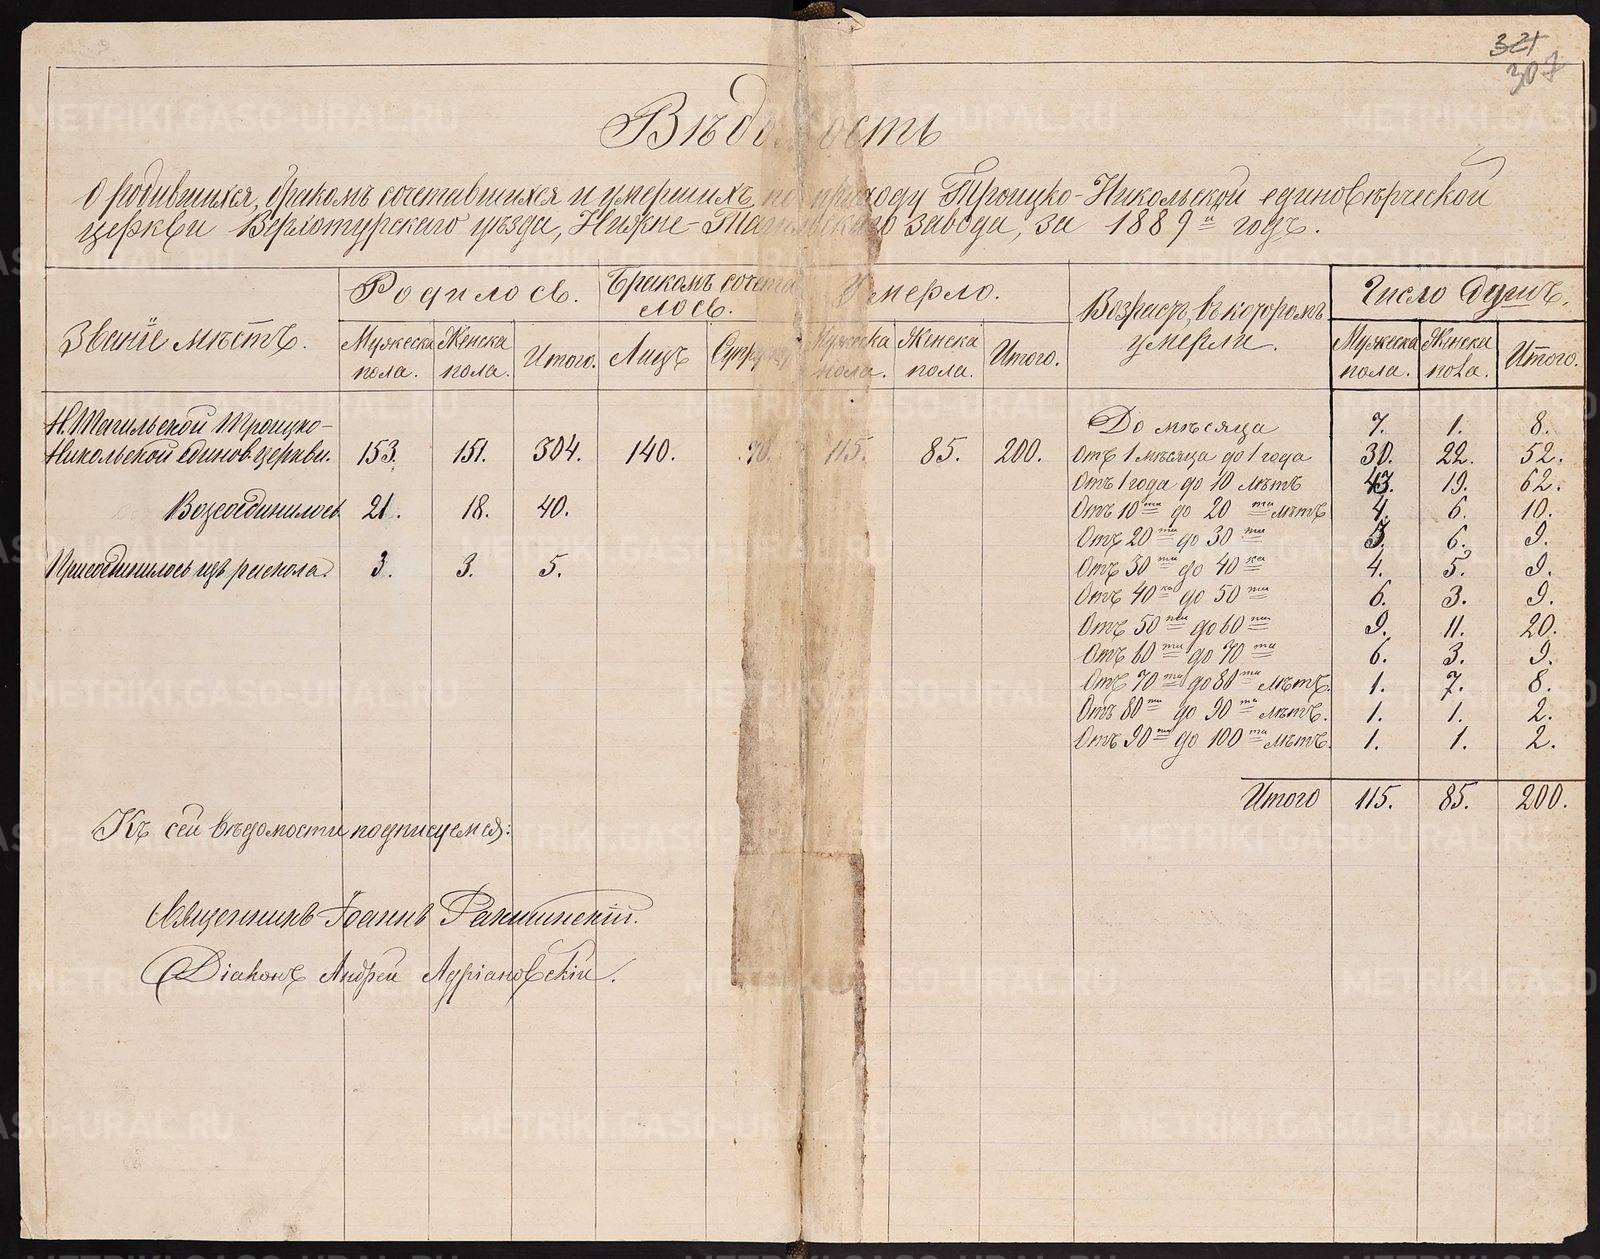 321
307
Вѣдомость
о родившихся, бракомъ сочетавшихся и умершихъ по приходу Троицко-Никольской единовѣрческой
церкви Верхотурскаго уѣзда, Нижне-Тагильскаго завода, за 1889й годъ.
Званіе мѣстъ. Родилось. Бракомъ сочета Умерло. Возрастъ, въ которомъ Число душъ.
лось. умерли.
Мужеска Женска Итого. Лицъ Супруж Мужеска Женска Итого. Мужеска Женска Итого.
пола. пола. пола. пола. пола. пола.
Н. Тагильской Троицко-
Никольской единов. церкви. 153. 151. 304. 140. 70. 115. 85. 200.
Возсоединилось 21. 18. 40.
Присоединилось изъ раскола. 3. 3. 5.
До мѣсяца 7. 1. 8.
Отъ 1 мѣсяца до 1 года 30. 22. 52.
Отъ 1 года до 10 лѣтъ 43. 19. 62.
Отъ 10ти до 20ти лѣтъ 4. 6. 10.
Отъ 20ти до 30ти 3. 6. 9.
Отъ 30ти до 40ка 4. 5. 9.
Отъ 40ка до 50ти 6. 3. 9.
Отъ 50ти до 60ти 9. 11. 20.
Отъ 60ти до 70ти 6. 3. 9.
Отъ 70ти до 80ти лѣтъ. 1. 7. 8.
Отъ 80ти до 90та лѣтъ. 1. 1. 2.
Отъ 90та до 100та лѣтъ. 1. 1. 2.
Итого 115. 85. 200.
Къ сей вѣдомости подписуемся:
Священникъ Іоаннъ Ракитинскій.
Діаконъ Андрей Адріановскій.
METRIKI.GASO-URAL.RU